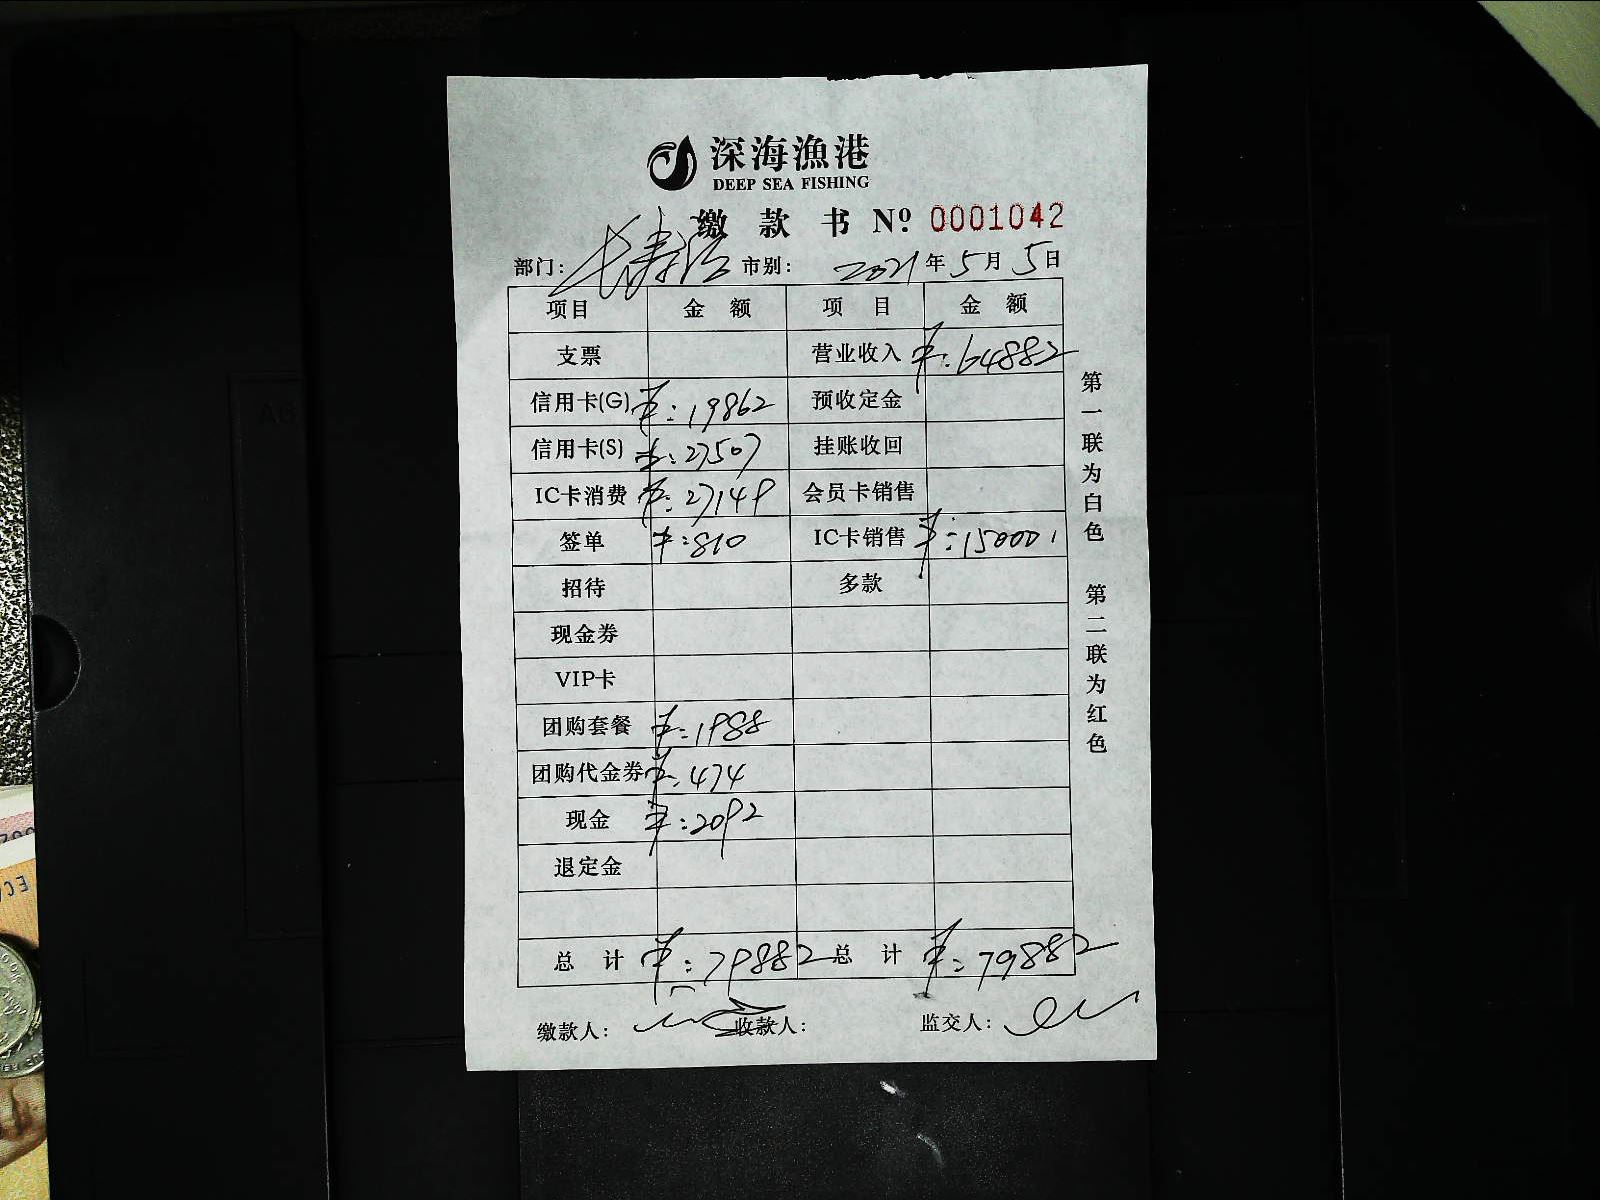 深海漁港
DEEP SEA FISHING
缴款书 Nº 0001042
部门: 长寿路 市别: 2021年5月5日
项目 金额 项目 金额
支票 营业收入 ¥:64882
信用卡(G) ¥:19862 预收定金
信用卡(S) ¥:27507 挂账收回
IC卡消费 ¥:27149 会员卡销售
签单 ¥:810 IC卡销售 ¥:15000
招待 多款
现金券
VIP卡
团购套餐 ¥:1988
团购代金券 ¥:474
现金 ¥:2092
退定金
总计 ¥:79882 总计 ¥:79882
缴款人: 收款人: 监交人:
第一联为白色 第二联为红色